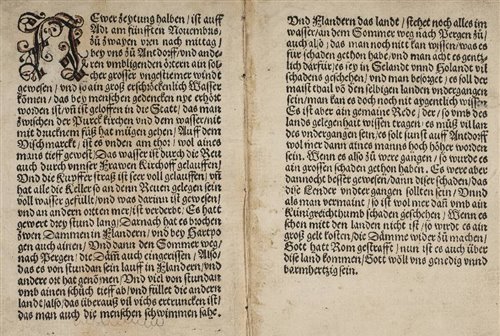 Newer zeytung halben / ist auff
Adi am fünfften Nouembris,
zů zwayen vren nach mittag /
bey vns zů Antdorff / vnd an-
dern vmbligenden örtern ain sol-
cher grosser vngstiemer winde
gewesen / vnd so ain groß erschröcklich Wasser
kömen / das bey menschen gedencken nye erhört
worden ist / vñ ist geloffen in die Statt / das man
zwischen der Purck kirchen vnd dem wasser / nit
mit drucknem füß hat mügen gehen / Auff dem
Vischmarckt / ist es vnden am thor / wol aines
mans tieff gewest / Das wasser ist durch die Reut
auch durch vnnser Frawen Kirchoff gelauffen /
Vnd die Kupffer straß ist seer voll gelauffen / vñ
hat alle die Keller so an denen Reuen gelegen sein
voll wasser gefüllt / vnd was darinn ist gewesen /
vnd an andern orten mer / ist verderbt. Es hatt
gewert drey stund lang / Darnach hat es brochen
zwen Dammen in Flandern / vnd bey Hartzo-
gen auch ainen / Vnd dann den Sommer weg /
nach Pergen / die Dam̃ auch eingerissen / Also /
das es von stundan sein lauff in Flandern / vnd
andere ort hat genömen / Vnd viel von stundan
vmb ainen schüch tieff ab / vnd füllet die andern
landt / also / das überauß vil vichs ertruncken ist /
das man auch die menschen schwimmen sahe.
Vnd Flandern das landt / stehet noch alles im
wasser / an dem Sommer weg nach Pergen zů /
auch also / das man noch nitt kan wissen / was es
für schaden gethon habe / vnd man acht es gentz-
lich darfür / es sey in Selandt vnnd Holandt vil
schadens geschehen / vnd man besorget / es soll der
maist thail võ den selbigen landen vndergangen
sein / man kan es doch noch nit aygentlich wissen
Es ist aber ain gemaine Rede / der / so vmb des
lands gelegenhait wissen tragen / es müß vil lan-
des vndergangen sein / es solt sunst auff Antdorff
wol mer dann aines manns hoch höher worden
sein. Wenn es also zů were gangen / so wurde es
ain grossen schaden gethon haben. Es were aber
dannocht besser gewesen / dann diser schaden / das
dise Lender vndergangen sollten sein / Vnnd
als man vermaint / so ist wol mer dañ vmb ain
Künigreichthumb schaden geschehen / Wenn es
schen mitt den landen nicht ist / so wurdt es ain
groß gelt kosten / die Dämme wider zů machen /
Gott hatt Rom gestrafft / nun ist es auch über
die land kommen / Gott wöll vns genedig vnnd
barmhertzig sein.